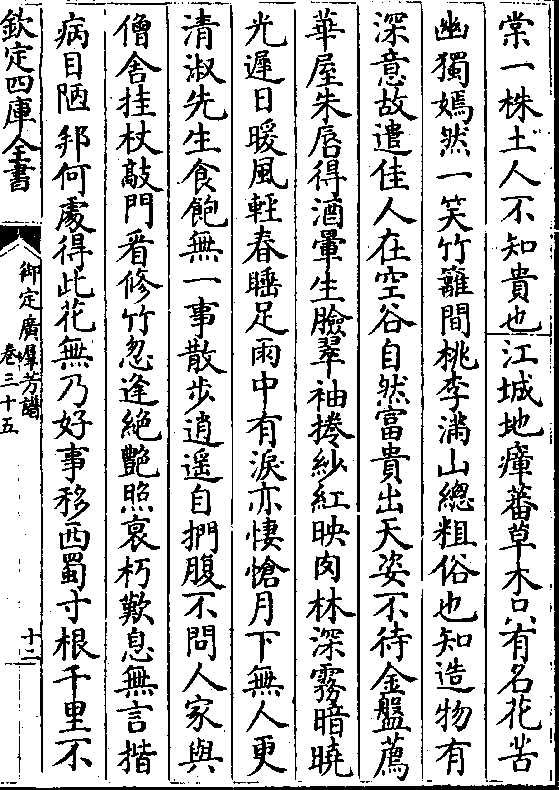 棠一株土人不知貴也江城地瘴蕃草木只有名花苦
幽獨嫣然一笑竹籬間桃李滿山總粗俗也知造物有
深意故遣佳人在空谷自然富貴出天姿不待金盤薦
華屋朱唇得酒暈生臉翠袖捲紗紅映肉林深霧暗曉
光遲日暖風輕春睡足雨中有淚亦悽愴月下無人更
清淑先生食飽無一事散步逍遥自捫腹不問人家與
僧舍挂杖敲門看修竹忽逢絶艷照衰朽歎息無言揩
病目陋邦何處得此花無乃好事移西蜀寸根千里不
欽定四庫全書
御定廣羣芳譜
卷三十五
十二